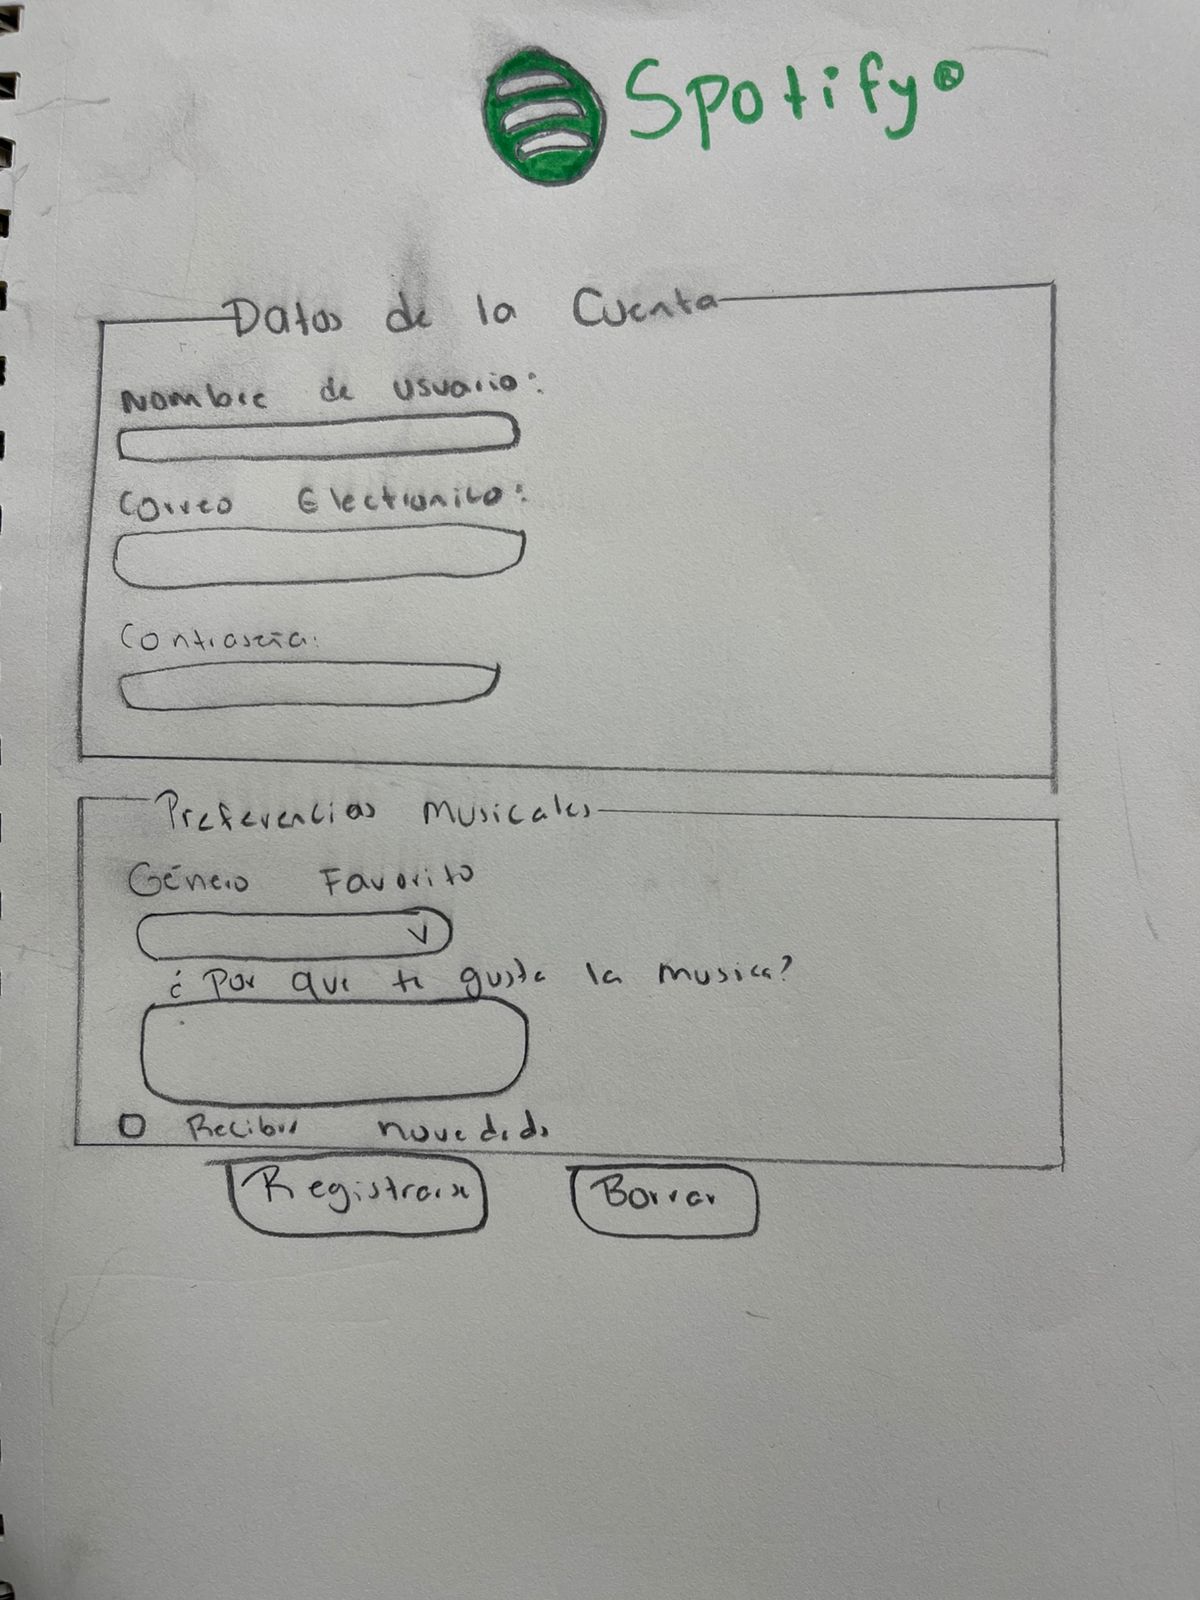 Spotify®
Datos de la Cuenta
Nombre de usuario:
Correo Electronico:
Contraseña:
Preferencias Musicales
Género Favorito
¿Por que te gusta la musica?
Recibir novedads
Registrarse
Borrar